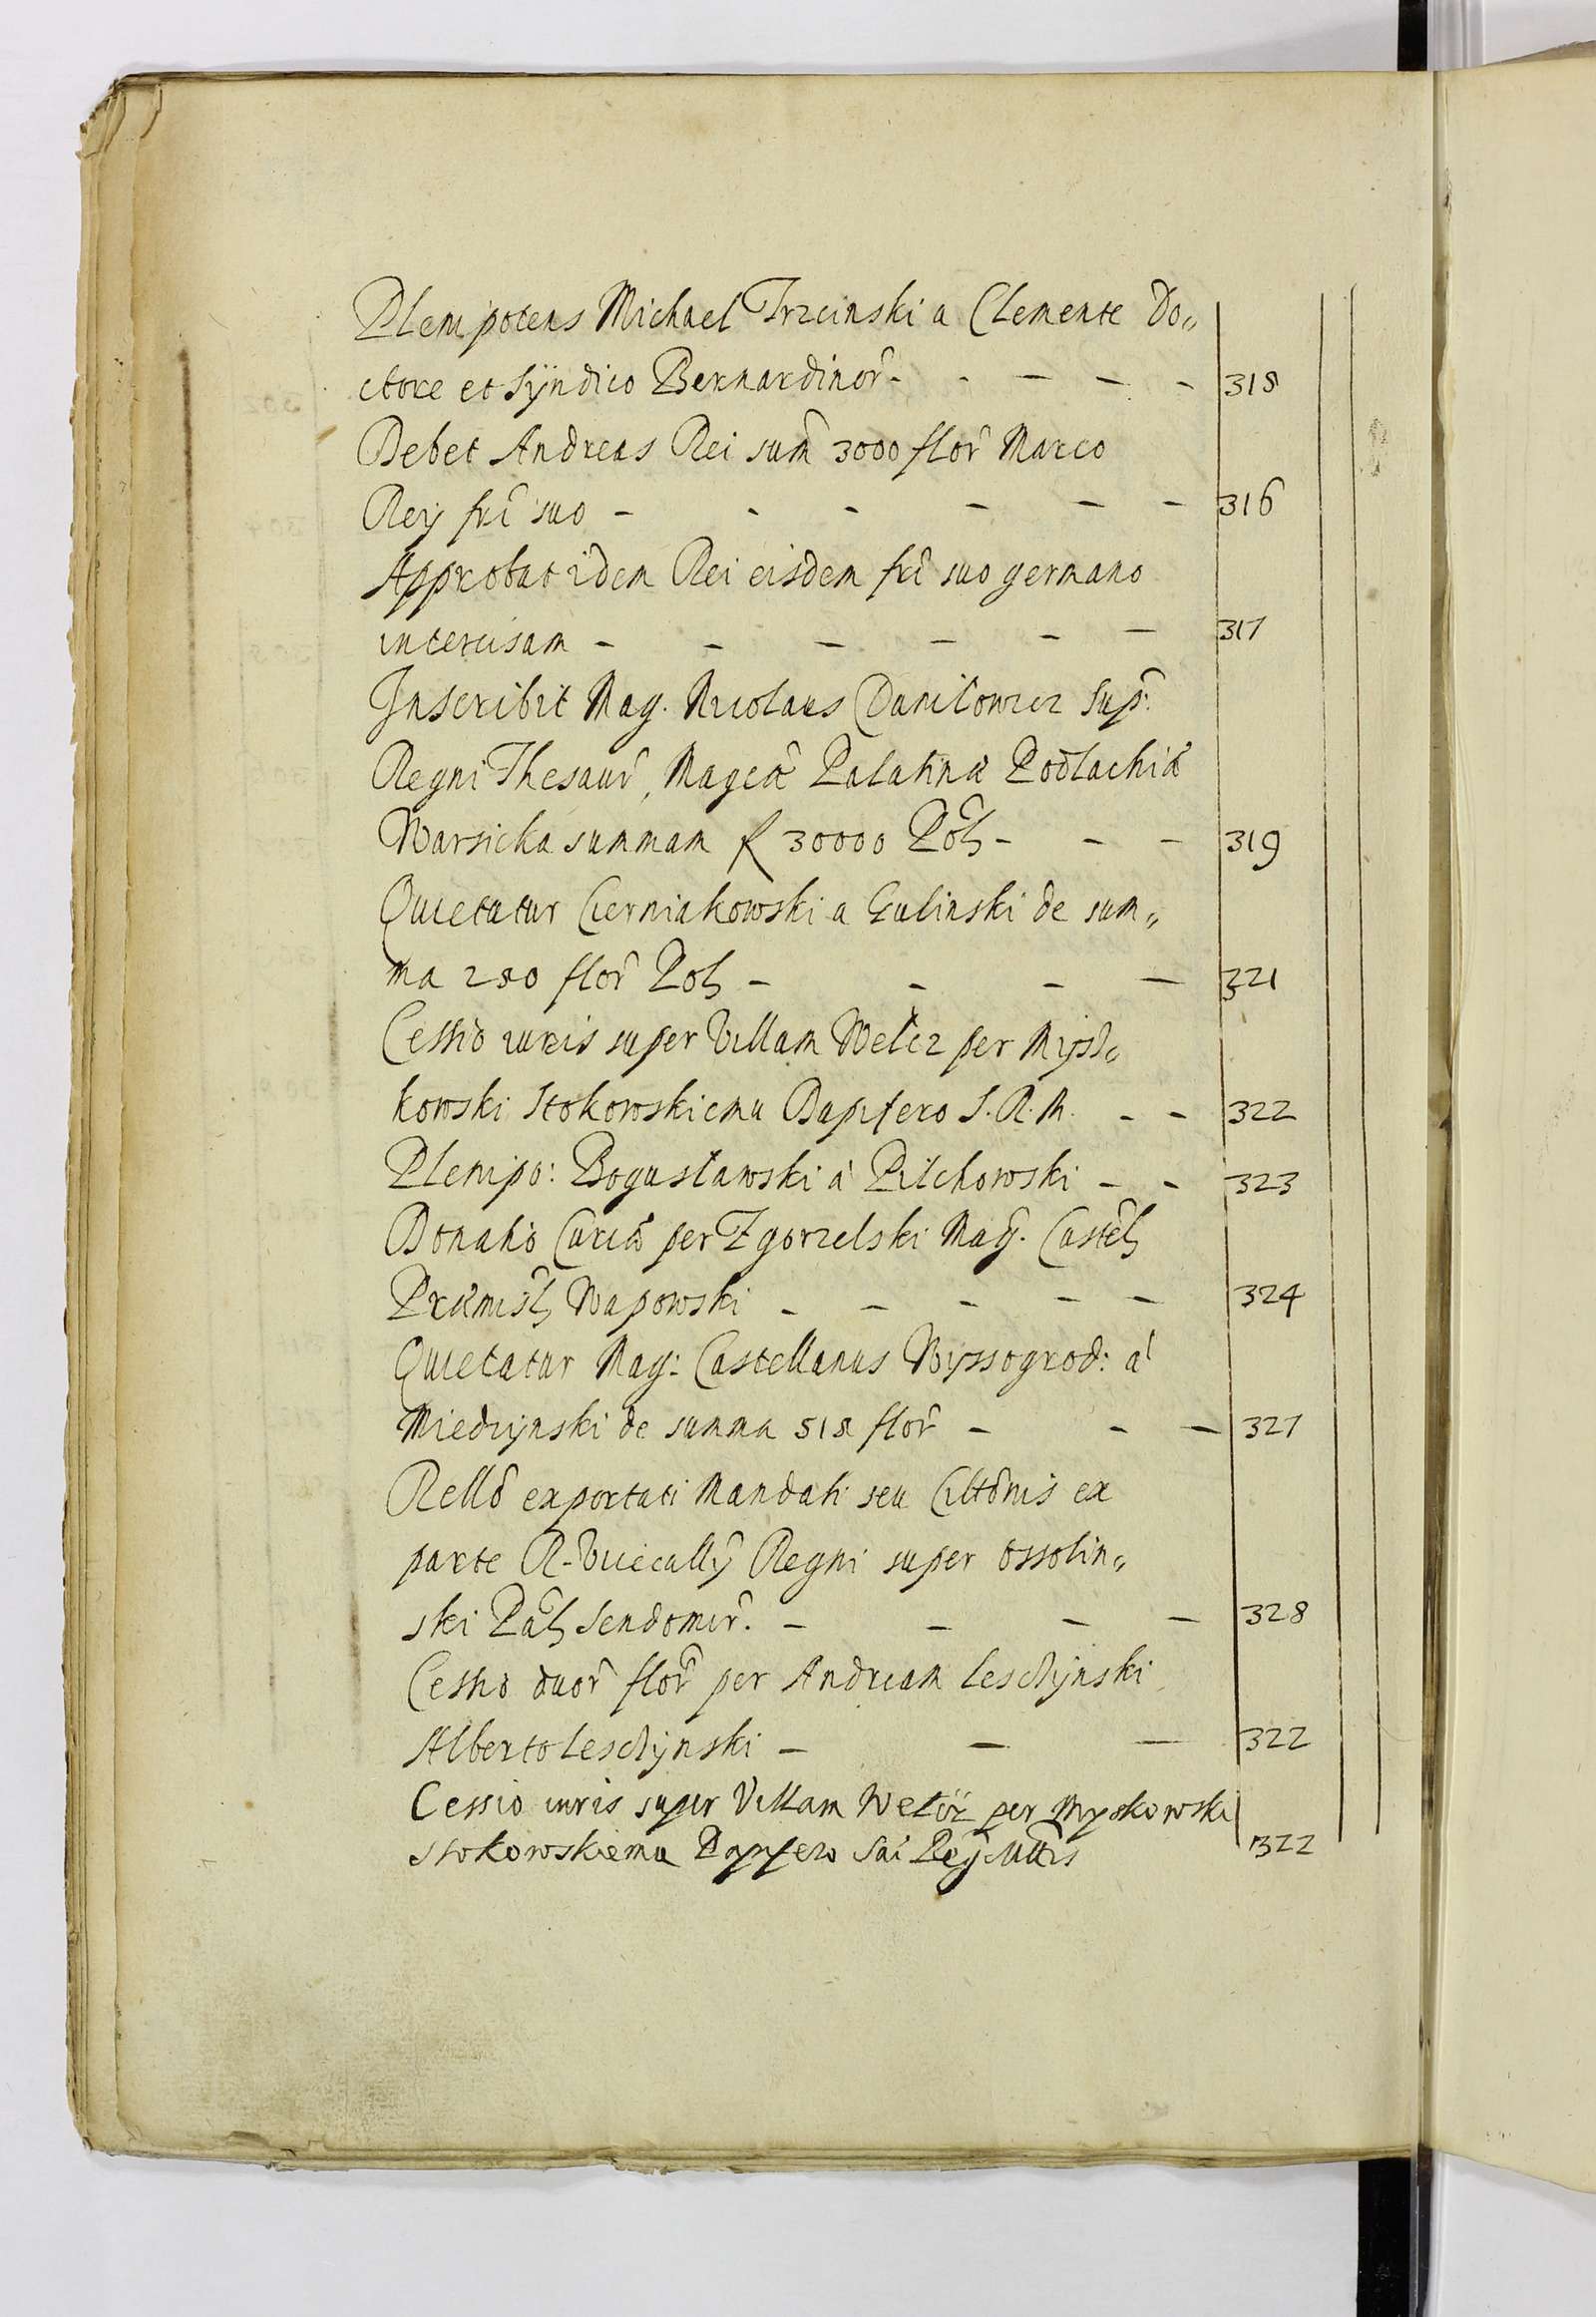 Plenipotens Michael Trzcinski a Clemente Do„
ctore et Syndico Bernardinor̃ - - - - - 315
Debet Andreas Rei sum̃ 3000 flor̃ Marco
Rey fri˜ suo - - - - - - 316
Approbat idem Rei eisdem fri˜ suo germano
intercisam - - - - - - 317
Inscribit Mag. Nicolaus Daniłowicz Sup:
Regni Thesaur̃, Magcæ Palatinæ Podlachiæ
Warsicka summam f 30000 Pol̃ - - - 319
Quietatur Czerniakowski a Gulinski de sum„
ma 280 flor̃ Pol - - - - 321
Cessio iuris super Villam Welcz per Mysz„
kowski Stokowskiemu Dapifero S. R. M. - - 322
Plenipo: Bogusławski à Pilchowski - - 323
Donatio Curiæ per Zgorzelski Mag. Castel̃
Præmisl̃ Wapowski - - - - - 324
Quietatur Mag: Castellanus Wyssogrod: à
Miedzynski de summa 518 flor̃ - - - 327
Rello˜ exportati Mandati seu Citt˜onis ex
parte R-Viecally Regni super Ossolin„
ski Pal̃ Sendomir̃. - - - - 328
Cessio duor̃ flor̃ per Andream Lesczÿnski
Alberto Lesczÿnski - - - 322
Cessio iuris super Villam Welcz per Myskowski
Stokowskiemu Dapifero Sac Reg Mttis 322